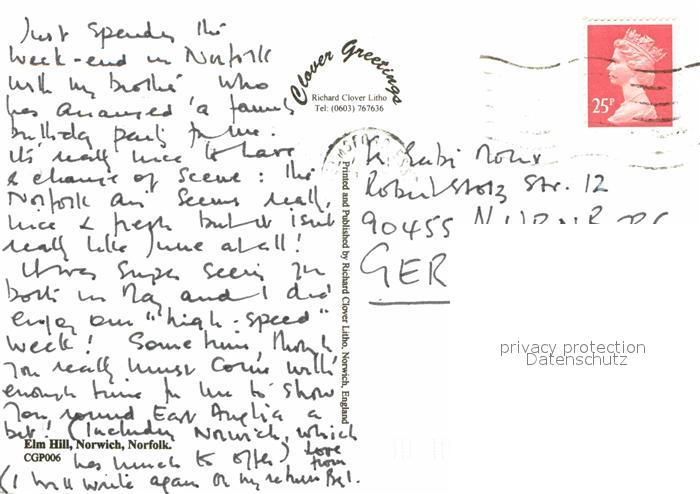 Just spending the
week-end in Norfolk
with my brother who
has arranged a family
birthday party for me.
It's really nice to have
a change of scene: the
Norfolk air seems really
nice & fresh but it isn't
really like June at all!
It was super seeing you
both in May and I did
enjoy our "high-speed"
week! Sometime, though
you really must come with
enough time for me to show
you round East Anglia a
bit! (Including Norwich, which
has much to offer) Love
from
(I will write again on my return
Elm Hill, Norwich, Norfolk.
CGP006
Clover Greetings
Richard Clover Litho
Tel: (0603) 767636
Printed and Published by Richard Clover Litho, Norwich, England
25P
Str. 12
90455
GER
privacy protection
Datenschutz